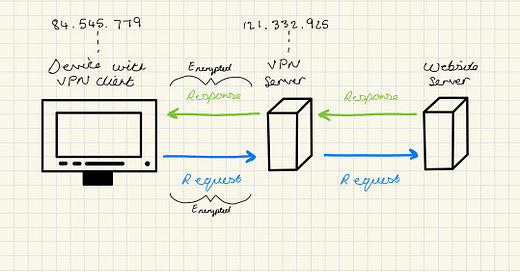 84.545.779
121.332.925
Device with
VPN client
Encrypted
VPN
Server
Website
Server
Response
Response
Request
Request
Encrypted